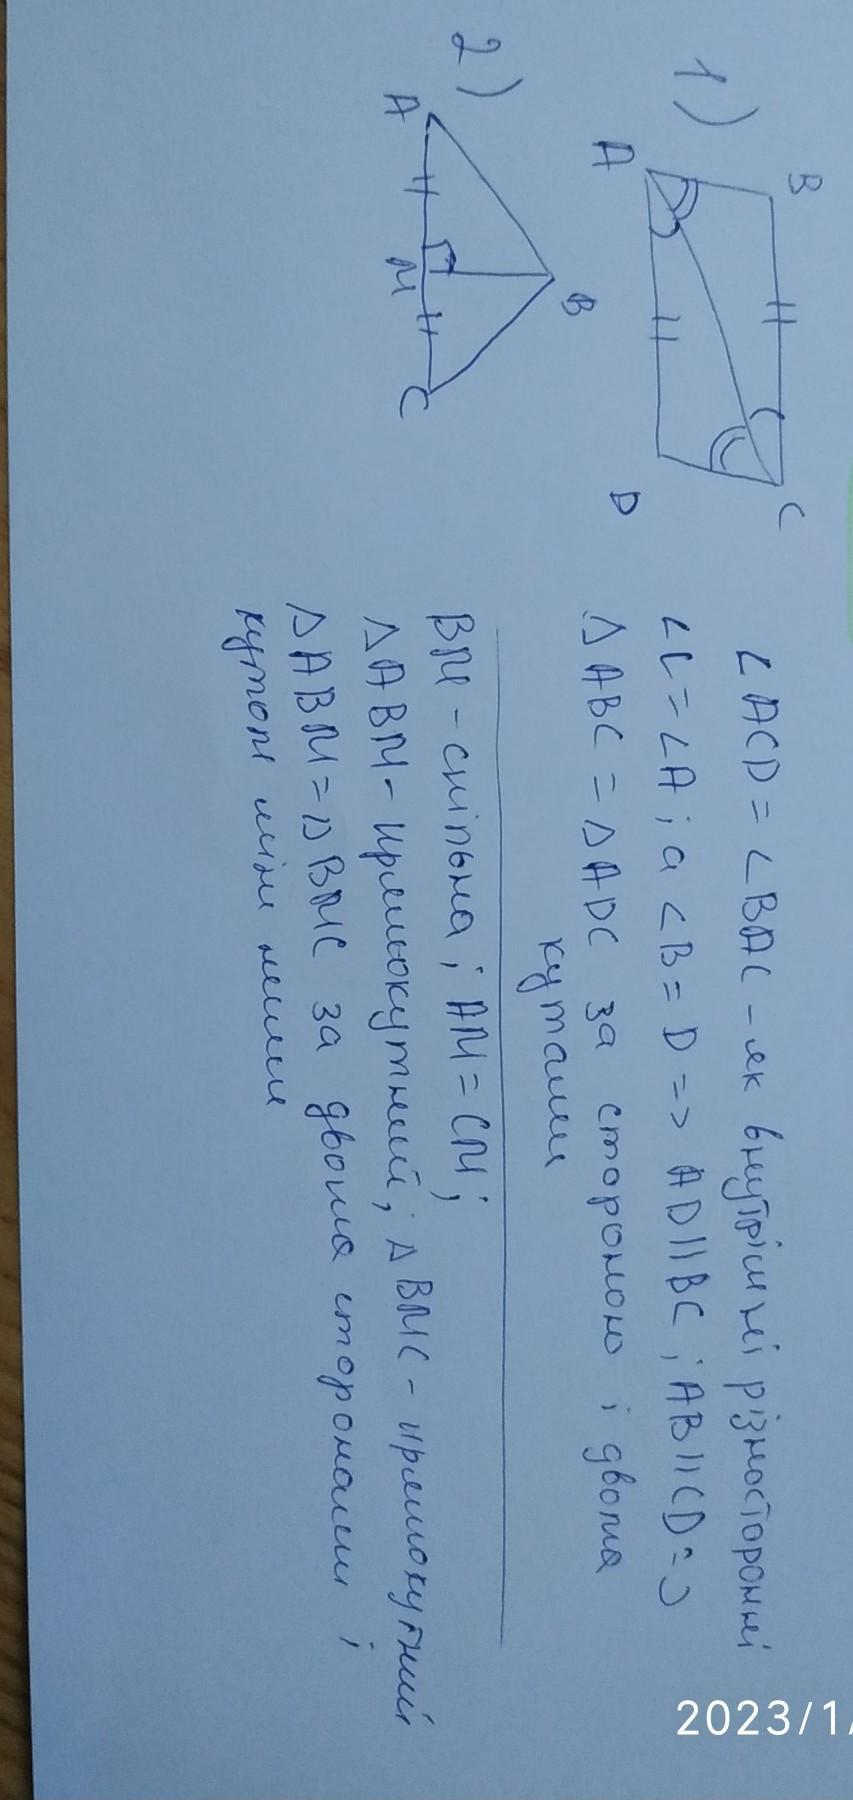 1)
B
A
C
D
∠ACD = ∠BAC - як внутрішні різносторонні
∠C = ∠A; а ∠B = D => AD||BC; AB||CD =>
△ABC = △ADC за стороною і двома
кутами
2)
A
M
B
C
BM - спільна; AM = CM;
△ABM - прямокутний; △BMC - прямокутний
△ABM = △BMC за двома сторонами і
кутом між ними
2023/1/